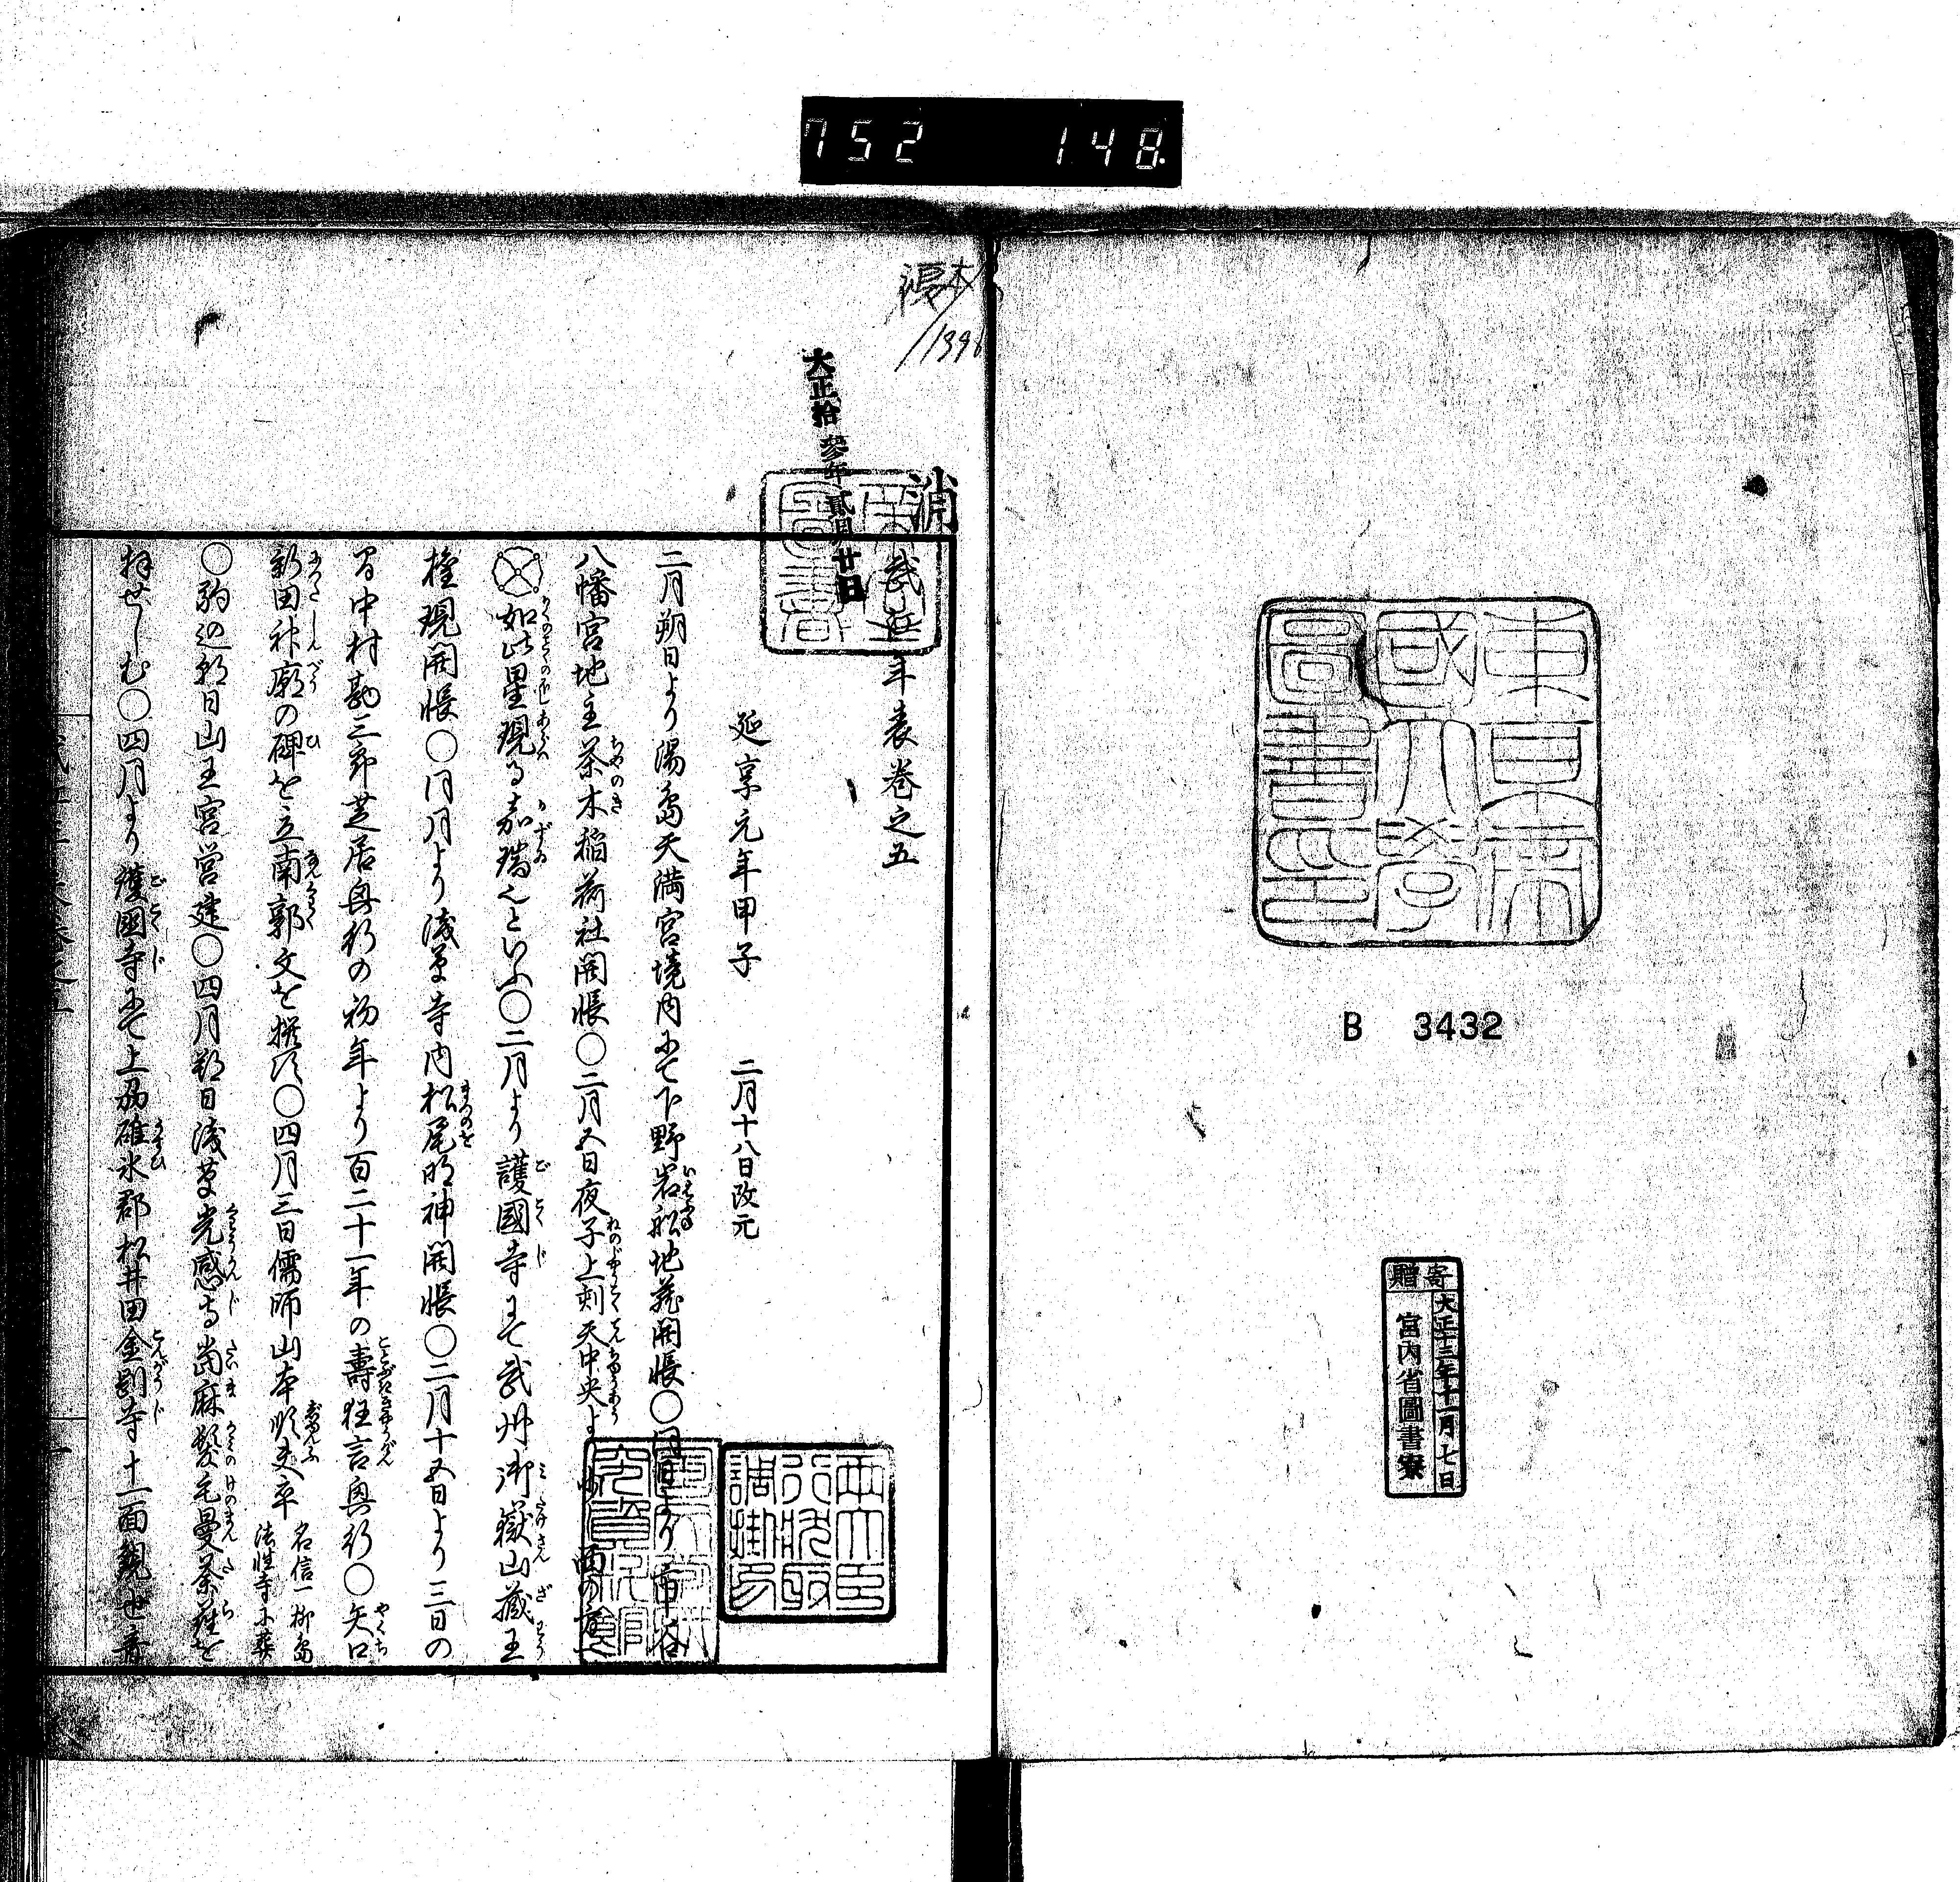 752 148
東京帝
國大學
圖書印
B 3432
寄贈
大正十三年十一月七日
宮内省圖書寮
1396
大正拾參年貳月廿日
消
武江年表巻之五
延享元年甲子 二月十八日改元
二月朔日より湯島天満宮境内にて下野岩船地蔵開帳〇同日より市谷
八幡宮地主茶木稲荷社開帳〇二月五日夜子上刻天中央より西の方へ
如此星現る嘉瑞也といふ〇二月より護國寺にて武州御嶽山蔵王
権現開帳〇同月より浅草寺内松尾明神開帳〇二月十五日より三日の
間中村勘三郎芝居興行の初年より百二十一年の壽狂言興行〇矢口
新田神廟の碑を立南郭文を撰す〇四月三日儒師山本順夫卒 名信一柳島法性寺に葬
〇駒込朝日山王宮営建〇四月朔日浅草光感寺當麻髪毛曼荼羅を
拝せしむ〇四月より護國寺にて上州碓氷郡松井田金剛寺十一面観世音